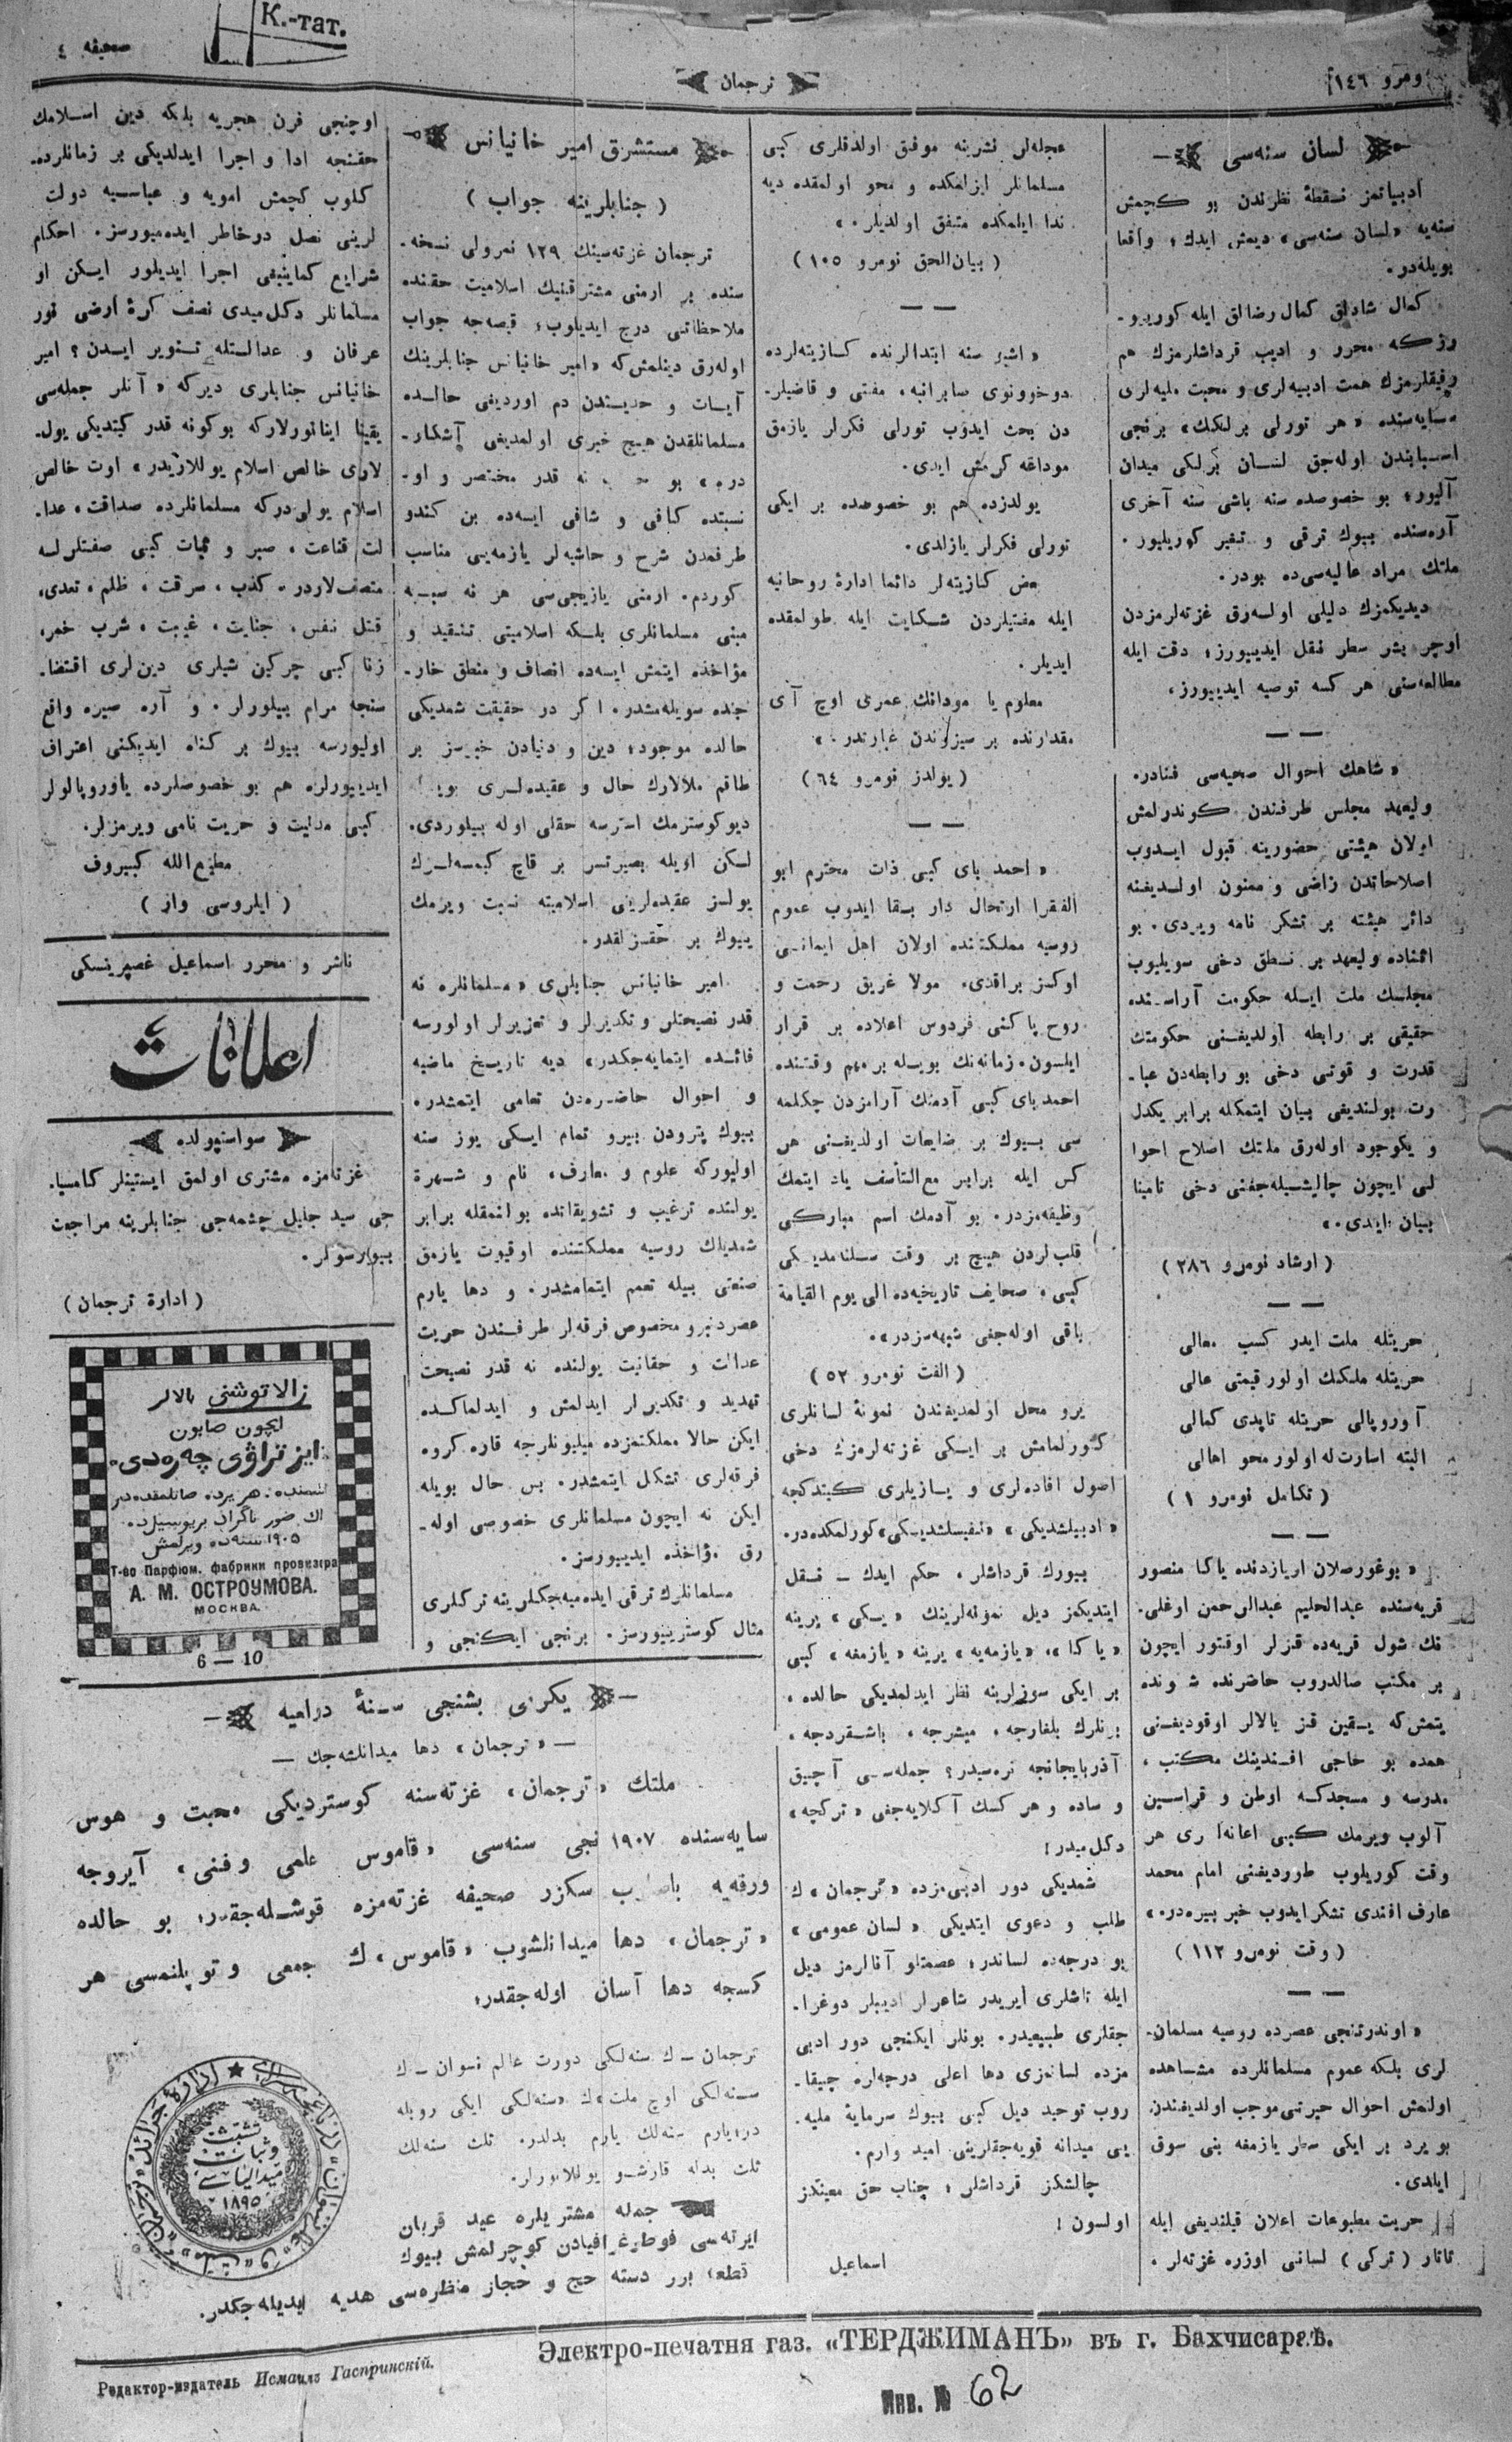 К.-тат.
صحیفه ٤
ترجمان
ومرو ١٤٦
لسان سنه‌سی
ادبیاتمز نقطهٔ نظرندن بو كچمش
سنه‌یه «لسان سنه‌سی» دیمش ایدك؛ واقعا
بویله‌در.
كمال شادلق كمال رضالق ایله كوریو-
رزكه محرر و ادیب قرداشلرمزك هم
رفیقلرمزك همت ادبیه‌لری و محبت ملیه‌لری
سایه‌سنده «هر تورلی برلكك» برنجی
اسبابندن اوله‌جق لسان برلكی میدان
آلیور؛ بو خصوصده سنه باشی سنه آخری
آره‌سنده بیوك ترقی و تغیر كوریلیور.
ملتك مراد عالیه‌سی‌ده بودر.
دیدیكمزك دلیلی اوله‌رق غزته‌لرمزدن
اوچر بشر سطر نقل ایدییورز؛ دقت ایله
مطالعه‌سنی هر كسه توصیه ایدییورز.
«شاهك احوال صحیه‌سی فنادر.
ولیعهد مجلس طرفندن كوندرلمش
اولان هیئتی حضورینه قبول ایدوب
اصلاحاتدن راضی و ممنون اولدیغنه
دائر هیئته بر تشكر نامه ویردی. بو
اثناده ولیعهد بر نطق دخی سویلیوب
مجلسك ملت ایله حكومت آراسنده
حقیقی بر رابطه اولدیغنی حكومتك
قدرت و قوتی دخی بو رابطه‌دن عبا-
رت بولندیغی بیان ایتمكله برابر یكدل
و یكوجود اوله‌رق ملتك اصلاح احوا
لی ایچون چالیشیله‌جغنی دخی تامینا
بیان ایدی.»
(ارشاد نومرو ٢٨٦)
حریتله ملت ایدر كسب معالی
حریتله ملكك اولور قیمتی عالی
آوروپالی حریتله تاپدی كمالی
البته اسارت‌له اولور محو اهالی
(تكامل نومرو ١)
«بوغورصلان اویازدنده یاكا منصور
قریه‌سنده عبدالحلیم عبدالرحمن اوغلی-
نك شول قریه‌ده قزلر اوقتور ایچون
بر مكتب صالدروب حاضرنده شونده
یتمش‌كه یقین قز بالالر اوقودیغنی
همده بو حاجی افندینك مكتب،
مدرسه و مسجدكه اوطن و قراسین
آلوب ویرمك كبی اعانه‌لری هر
وقت كوریلوب طوردیغنی امام محمد
عارف افندی تشكر ایدوب خبر بیره‌در.»
(وقت نومرو ١١٢)
«اوندرتنجی عصرده روسیه مسلمان-
لری بلكه عموم مسلمانلرده مشاهده
اولنمش احوال حیرتی‌موجب اولدیغندن
بویرد بر ایكی سطر یازمغه بنی سوق
ایلدی.
حریت مطبوعات اعلان قیلندیغی ایله
تاتار (تركی) لسانی اوزره غزته‌لر،
مجله‌لر نشرینه موفق اولدقلری كبی
مسلمانلر ایزلمكده و محو اولمقده دیه
ندا ایلمكده متفق اولدیلر.»
(بیان‌الحق نومرو ١٠٥)
«اشبو سنه ابتدالرنده كازیته‌لرده
دوخوونوی صابرانیه، مفتی و قاضیلر-
دن بحث ایدوب تورلی فكرلر یازمق
موداغه كرمش ایدی.
یولدزده هم بو خصوصده بر ایكی
تورلی فكرلر یازلدی.
بعض كازیته‌لر دائما ادارهٔ روحانیه
ایله مفتیلردن شكایت ایله طولمقده
ایدیلر.
معلوم یا مودانك عمری اوچ آی
مقدارنده بر سیزوندن عبارتدر.»
(یولدز نومرو ٦٤)
«احمد بای كبی ذات محترم ابو
الفقرا ارتحال دار بقا ایدوب عموم
روسیه مملكتنده اولان اهل ایمانی
اوكسز براقدی. مولا غریق رحمت و
روح پاكنی فردوس اعلاده بر قرار
ایلسون. زمانه‌نك بویله بر مهم وقتنده
احمد بای كبی آدمنك آرامزدن چكلمه
سی بیوك بر ضایعات اولدیغنی هر
كس ایله برابر مع‌التأسف یاد ایتمك
وظیفه‌مزدر. بو آدمك اسم مباركی
قلب‌لردن هیچ بر وقت سلنمدیكی
كبی، صحایف تاریخیه‌ده الی یوم القیامة
باقی اوله‌جغی شبهه‌سزدر.»
(الفت نومرو ٥٢)
یرو محل اولمدیغندن نمونهٔ لسانلری
كورلمامش بر ایكی غزته‌لرمزك دخی
اصول افاده‌لری و یازیلری كیتدكجه
«ادبیلشدیكی» «نفیسلشدیكی» كورلمكده‌در.
بیورك قرداشلر، حكم ایدك — نقل
ایتدیكمز دیل نمونه‌لرینك «یسكی» یرینه
«یاكا»، «یازمه‌یه» یرینه «یازمغه» كبی
بر ایكی سوزلرینه نظر ایدلمدیكی حالده،
بونلرك بلغارجه، میشرجه، باشقردجه،
آذربایجانجه نره‌سیدر؟ جمله‌سی آچیق
و ساده و هر كسك آكلایه‌جغی «تركچه»
دكل‌میدر!
شمدیكی دور ادبی‌مزده «ترجمان» ك
طلب و دعوی ایتدیكی «لسان عمومی»
بو درجه‌ده لساندر؛ عصمتلو آنالرمز دیل
ایله تاشلری ایریدر شاعرلر ادیبلر دوغرا-
جقلری طبیعیدر. بونلر ایكنجی دور ادبی
مزده لسانمزی دها اعلی درجه‌لره چیقا-
روب توحید دیل كبی بیوك سرمایهٔ ملیه-
یی میدانه قویه‌جقلرینی امید وارم.
چالشكز قرداشلر؛ جناب حق معینكز
اولسون!
اسماعیل
مستشرق امیر خانیانس
(جنابلرینه جواب)
ترجمان غزته‌سینك ١٢٩ نمرولی نسخه-
سنده بر ارمنی مشترقینك اسلامیت حقنده
ملاحظاتی درج ایدیلوب، قیصه‌جه جواب
اوله‌رق دینلمش‌كه «امیر خانیانس جنابلرینك
آیات و حدیثدن دم اوردیغی حالده
مسلمانلقدن هیچ خبری اولمدیغی آشكار-
در» بو نه قدر مختصر و او-
نسبتده كافی و شافی ایسه‌ده بن كندو
طرفمدن شرح و حاشیه‌لر یازمه‌یی مناسب
كوردم. ارمنی یازیجی‌سی هر نه سببه
مبنی مسلمانلری بلكه اسلامیتی تنقید و
مؤاخذه ایتمش ایسه‌ده انصاف و منطق خار-
جنده سویله‌مشدر. اكر در حقیقت شمدیكی
حالده موجود؛ دین و دنیادن خبرسز بر
طاقم ملالارك حال و عقیده‌لری بویله
دیوكوسترمك استرسه حقلی اوله بیلوردی.
لكن اویله بصیرتسز بر قاچ كیمسه‌لرك
یولسز عقیده‌لرینی اسلامیته نسبت ویرمك
بیوك بر حقسزلقدر.
امیر خانیانس جنابلری «مسلمانلره نه
قدر نصیحتلر و تكدیرلر و تعزیرلر اولورسه
فائده ایتمایه‌جكدر» دیه تاریخ ماضیه
و احوال حاضره‌دن تعامی ایتمشدر.
بیوك پترودن بیرو تمام ایكی یوز سنه
اولیوركه علوم و معارف، نام و شهرة
یولنده ترغیب و تشویقاتده بولنمقله برابر
شمدیلك روسیه مملكتنده اوقیوب یازمق
صنعتی بیله تعمم ایتمامشدر. و دها یارم
عصردنبرو مخصوص فرقه‌لر طرفندن حریت
عدالت و حقانیت یولنده نه قدر نصیحت
تهدید و تكدیرلر ایدلمش و ایدلماكده
ایكن حالا مملكتمزده میلیونلرجه قاره كروه
فرقه‌لری تشكل ایتمشدر. بس حال بویله
ایكن نه ایچون مسلمانلری خصوصی اوله-
رق مؤاخذه ایدییورسز.
مسلمانلرك ترقی ایده‌میه‌جكلرینه تركلری
مثال كوسترییورسز. برنجی ایكنجی و
اوچنجی قرن هجریه بلكه دین اسلامك
حقنجه ادا و اجرا ایدلدیكی بر زمانلرده-
كلوب كچمش امویه و عباسیه دولت
لرینی نصل دوخاطر ایده‌میورسز. احكام
شرایع كماینبغی اجرا ایدیلور ایكن او
مسلمانلر دكل‌میدی نصف كرهٔ ارضی نور
عرفان و عدالتله تنویر ایدن؟ امیر
خانیانس جنابلری دیركه «آنلر جمله‌سی
یقینا اینانورلاركه بوكونه قدر كیتدیكی یول-
لاری خالص اسلام یوللاریدر» اوت خالص
اسلام یولی‌دركه مسلمانلرده صداقت، عدا-
لت قناعت، صبر و ثبات كبی صفتلرله
متصف‌لاردر. كذب، سرقت، ظلم، تعدی،
قتل نفس، جنایت، غیبت، شرب خمر،
زنا كبی چركین شیلری دین‌لری اقتضا-
سنجه حرام بیلورلر. و آره صیره واقع
اولیورسه بیوك بر كناه ایدیكنی اعتراف
ایدییورلر. هم بو خصوصلرده یاوروپالولر
كبی مدنیت و حریت نامی ویرمزلر.
مطیع‌الله كبیروف
(ایلروسی وار)
ناشر و محرر اسماعیل غصپرینسكی
اعلانات
سواستپولده
غزتامزه مشتری اولمق ایستینلر كامسیا-
جی سید جلیل چشمه‌جی جنابلرینه مراجعت
بیورسونلر.
(ادارهٔ ترجمان)
زالاتوشنی بالالر
ایچون صابون
هر یرده صاتلمقده‌در
١٩٠٥ سنه‌ده ویرلمش
Т-во Парфюм. фабрики провизора
А. М. ОСТРОУМОВА.
МОСКВА.
6 — 10
یكرمی بشنجی سنهٔ دراعیه
— «ترجمان» دها میدانلشه‌جك —
ملتك «ترجمان» غزته‌سنه كوستردیكی محبت و هوس
سایه‌سنده ١٩٠٧ نجی سنه‌سی «قاموس علمی و فنی» آیروجه
ورقه‌یه سكزر صحیفه غزته‌مزه قوشله‌جقدر؛ بو حالده
«ترجمان» دها میدانلشوب «قاموس» ك جمعی و توپلنمسی هر
كسجه دها آسان اوله‌جقدر؛
ترجمان — ك سنه‌لكی دورت عالم نسوان — ك
سنه‌لكی اوچ ملت» ك «سنه‌لكی ایكی روبله
در؛ یارم سنه‌لك یارم بدلدر. ثلث سنه‌لك
ثلث بدله قارشو یوللانورلر.
جمله مشتریلره عید قربان
ایرته‌سی فوطوغرافیادن كوچرلمش بیوك
قطعه برر دسته حج و حجاز منظره‌سی هدیه ایدیله‌جكدر.
تشبث
و ثبات
١٨٩٥
Электро-печатня газ. «ТЕРДЖИМАНЪ» въ г. Бахчисараѣ.
Редактор-издатель Исмаилъ Гаспринскій.
Инв. № 62